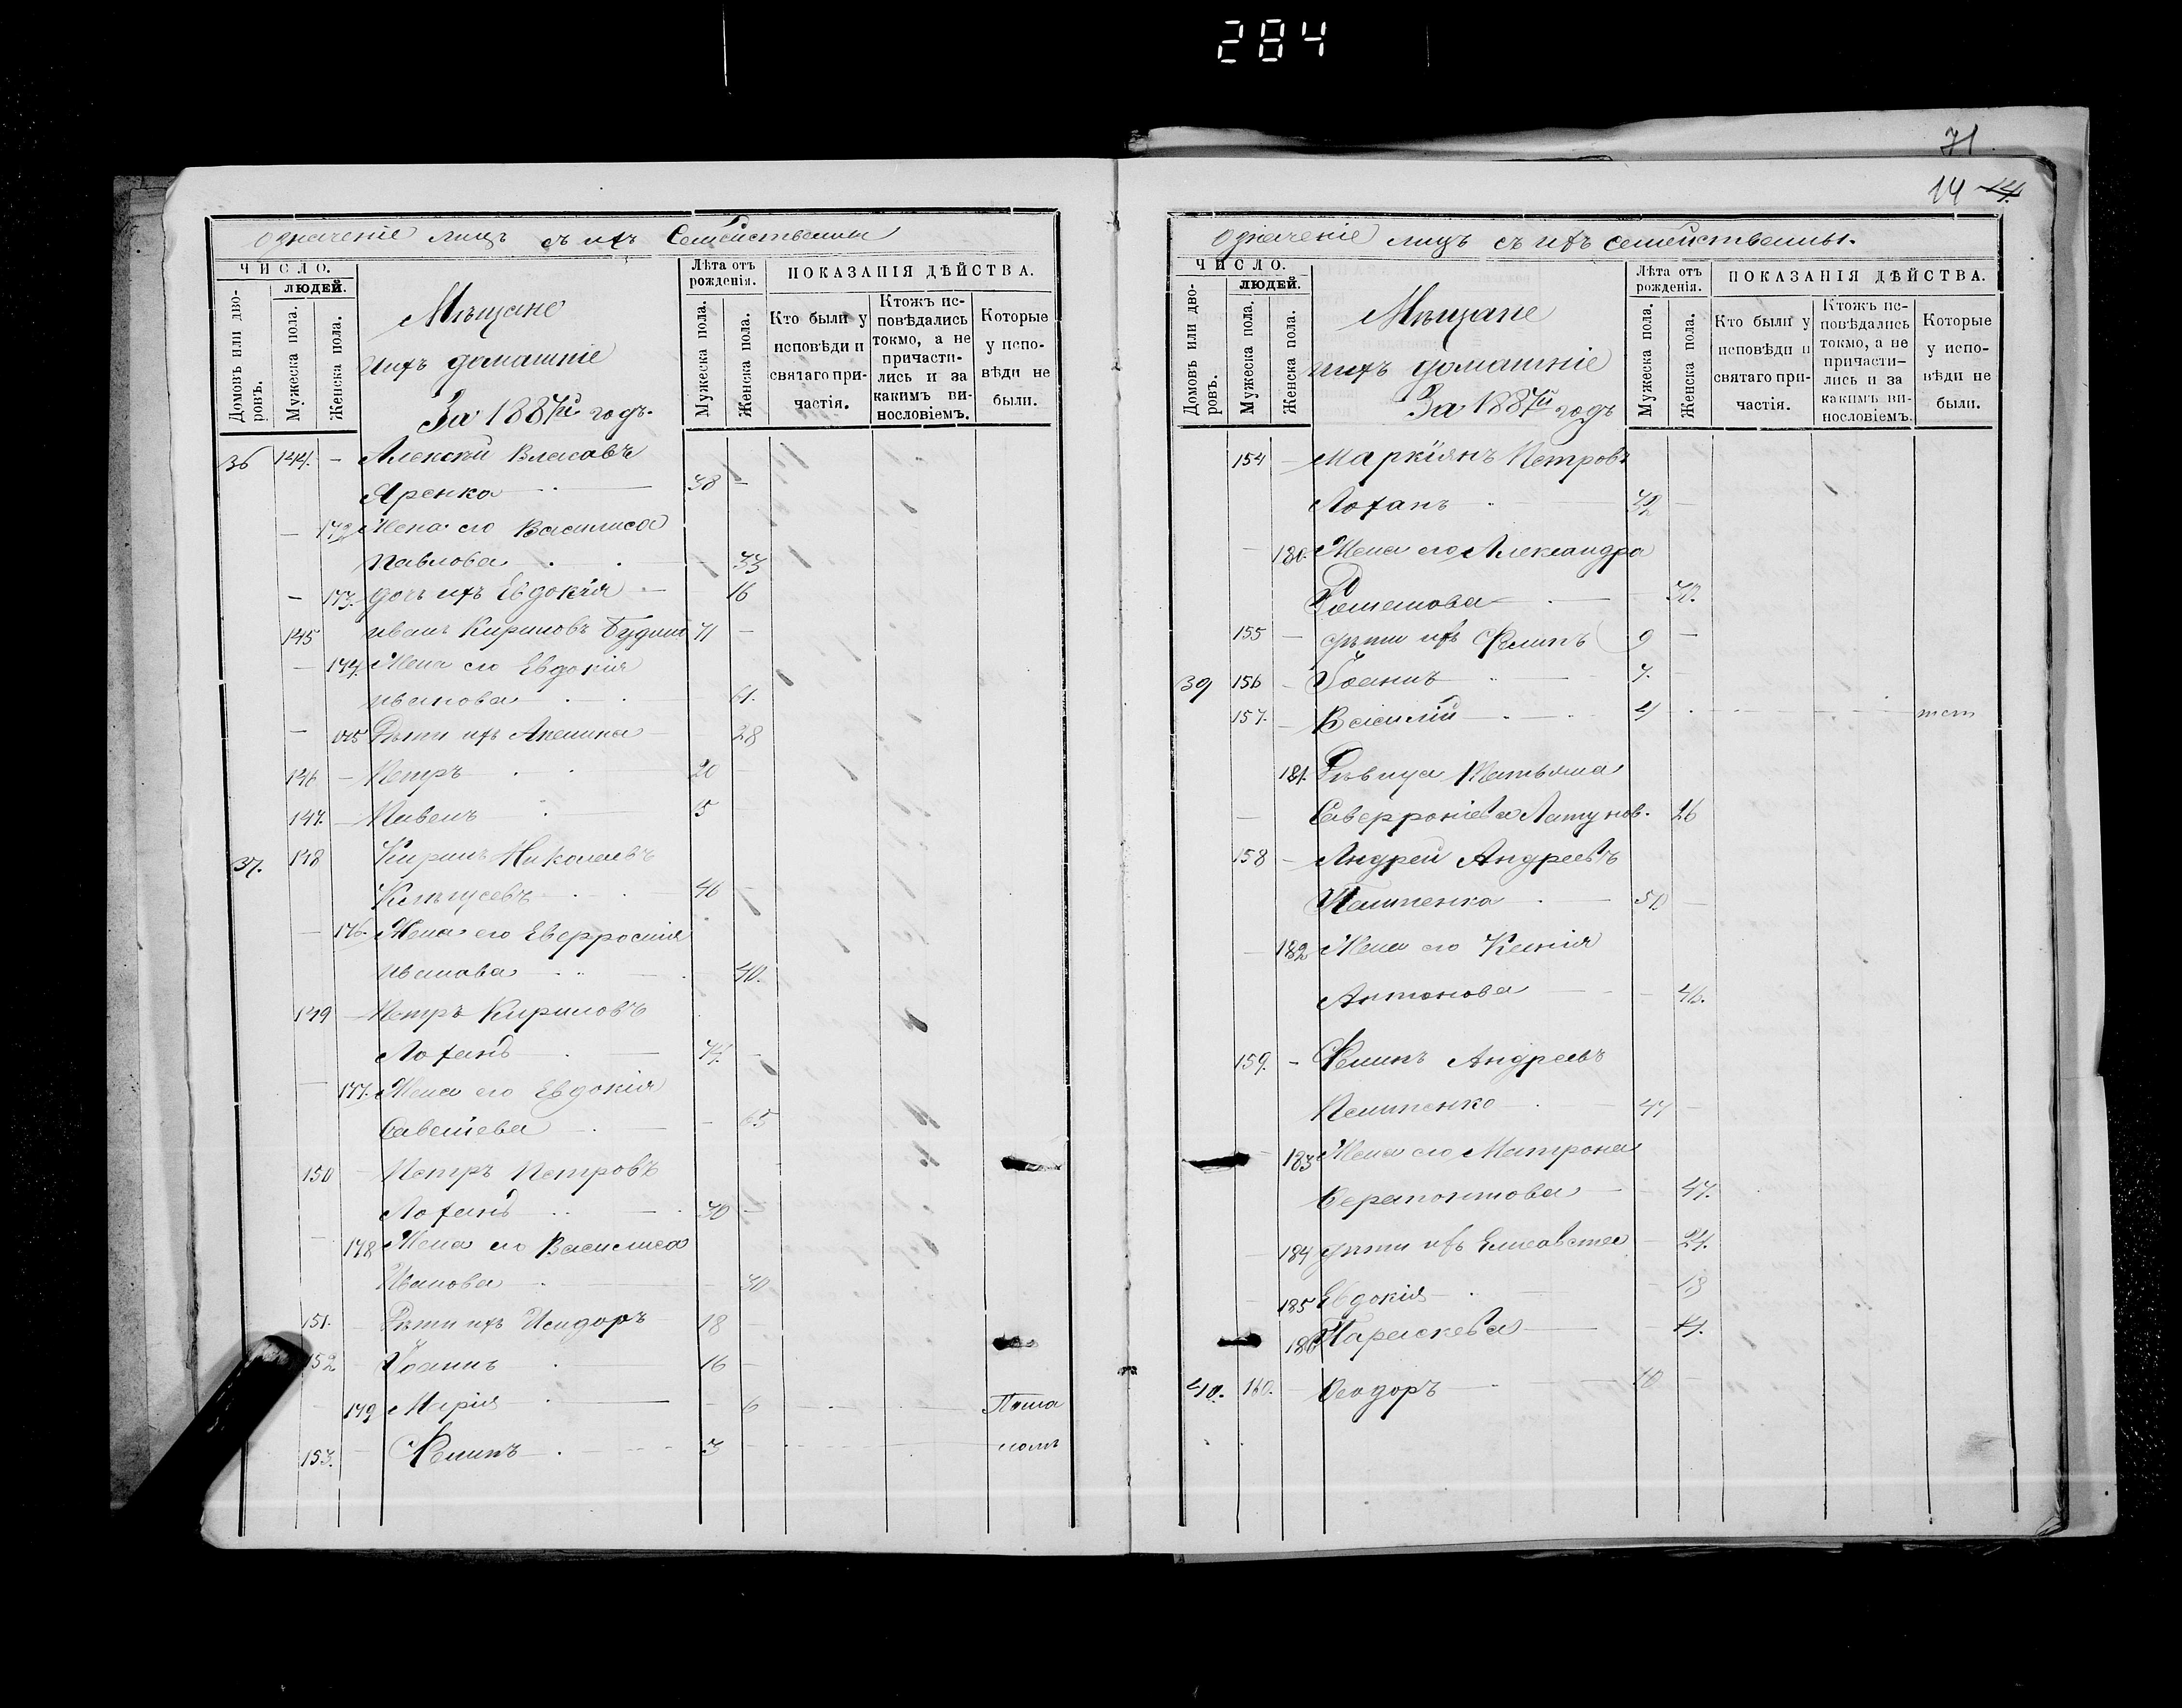 284
71
14 14.
означеніе лицъ съ ихъ Семействами
ЧИСЛО.
Домовъ или дворовъ.
ЛЮДЕЙ.
Мужеска пола.
Женска пола.
Мѣщане
ихъ домашніе
За 1887й годъ.
Лѣта отъ рожденія.
Мужеска пола.
Женска пола.
ПОКАЗАНІЯ ДѢЙСТВА.
Кто были у исповѣди и святаго причастія.
Ктожъ исповѣдались токмо, а не причастились и за какимъ винословіемъ.
Которые у исповѣди не были.
36 144. - Алексѣй Власовъ
Яренко 38 -
- 172 Жена его Василиса
Павлова 33
- 173. дочь ихъ Евдокія 16
145 Иванъ Кириловъ 71 -
- 174. Жена его Евдокія
Иванова 61.
- 175 Дѣти ихъ 28
146 - Петръ 20
147. - Павелъ 15
37. 148 Кирилъ Николаевъ
46 -
- 176. Жена его Евфросинія
Иванова 40.
149 - Петръ Кириловъ
Лоханъ 74. -
177. Жена его Евдокія
Савельева - 65
150 Петръ Петровъ
Лоханъ 40 -
178 Жена его Василиса
Иванова 40
151. Дѣти ихъ Исидоръ 18
152 Іоаннъ 16 -
179 Марія - 6
153. Филипъ 3
означеніе лицъ съ ихъ семействами.
ЧИСЛО.
Домовъ или дворовъ.
ЛЮДЕЙ.
Мужеска пола.
Женска пола.
Мѣщане
ихъ домашніе
За 1887й годъ
Лѣта отъ рожденія.
Мужеска пола.
Женска пола.
ПОКАЗАНІЯ ДѢЙСТВА.
Кто были у исповѣди и святаго причастія.
Ктожъ исповѣдались токмо, а не причастились и за какимъ винословіемъ.
Которые у исповѣди не были.
154 - Маркіянъ Петровъ
Лоханъ 32 -
- 180. Жена его Александра
32.
155 - дѣти ихъ Филипъ 9 -
39 156 - Іоаннъ 7.
157. - Василій 4
181. Дѣвица Татьяна
26
158 - Андрей Андреевъ
Пешненко 50 -
- 182 Жена его Ксенія
Антонова - 46.
159. - Филипъ Андреевъ
Пешненко 47 -
- 183 Жена его Матрона
Ферапонтова 47.
- 184 дѣти ихъ Елисавета - 24.
- 185 Евдокія - 18
186 Параскева - 14.
40. 160. - Ѳеодоръ 10 -